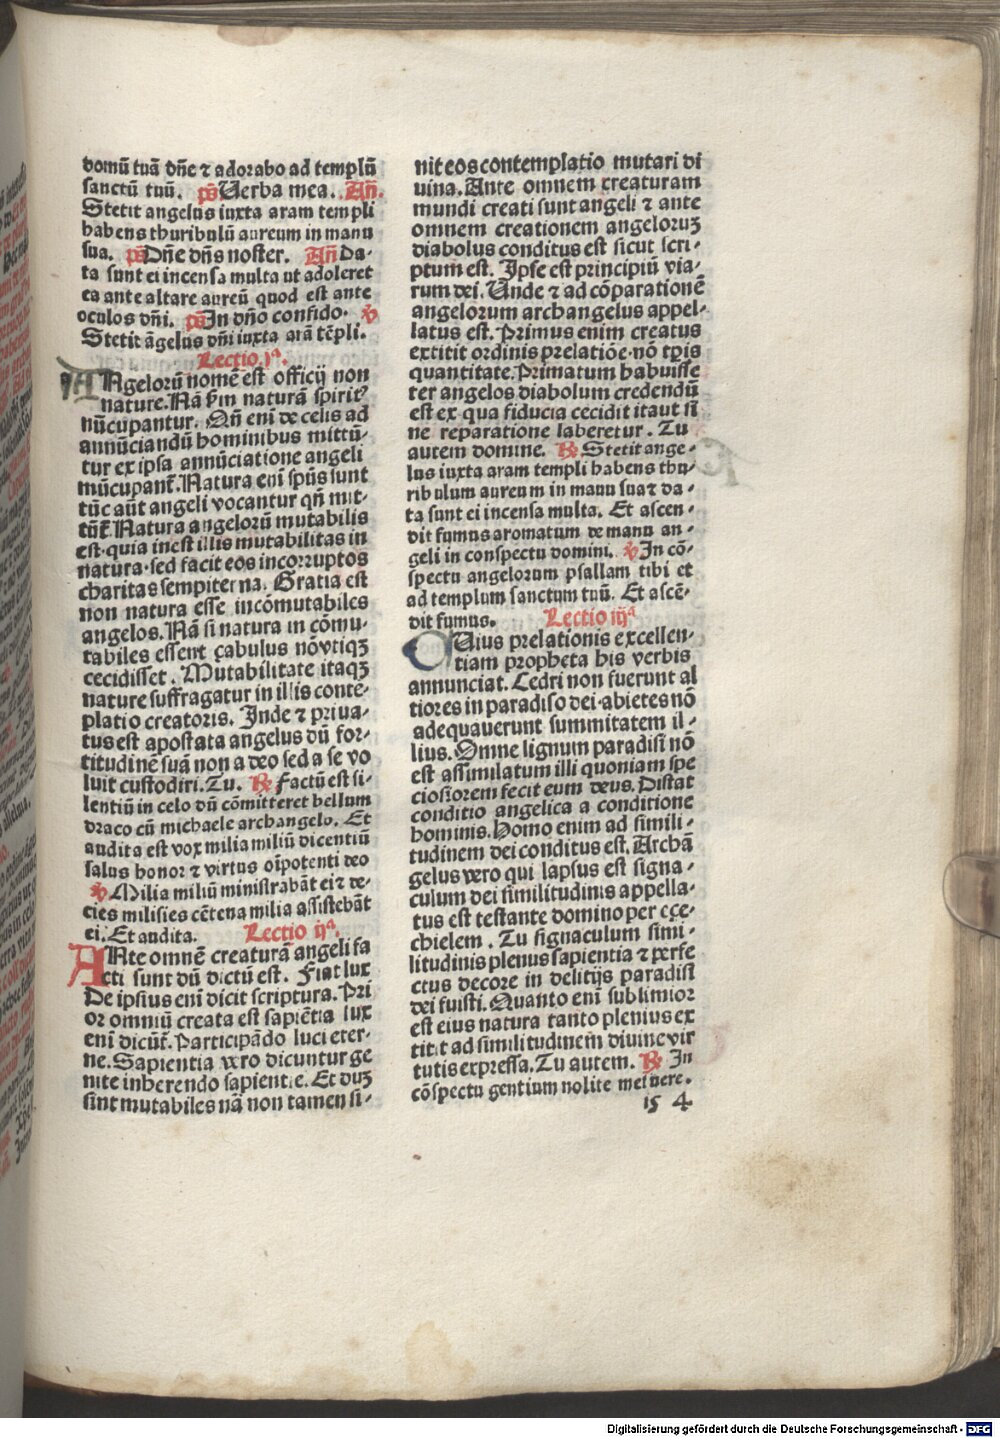 domū tuā dñe ⁊ adorabo ad templū
sanctū tuū. ps̄ Verba mea. Añ.
Stetit angelus iuxta aram templi
habens thuribulū aureum in manu
sua. ps̄ Dñe dñs noster. Añ Da-
ta sunt ei incensa multa ut adoleret
ea ante altare aureū quod est ante
oculos dñi. ps̄ In dño confido. ℣
Stetit āgelus dñi iuxta arā tēpli.
Lectio .jª.
ANgelorū nomē est officij non
nature. Nā s̄m naturā spiritꝰ
nūcupantur. Qñ eni̅ de celis ad
annūciandū hominibus mittū-
tur ex ipsa annūciatione angeli
nūcupant᷑. Natura eni̅ spūs sunt
tūc aūt angeli vocantur qñ mit-
tūt᷑. Natura angelorū mutabilis
est. quia inest illis mutabilitas in
natura. sed facit eos incorruptos
charitas sempiterna. Gratia est
non natura esse incōmutabiles
angelos. Nā si natura in cōmu-
tabiles essent çabulus nōvtiqꝫ
cecidisset. Mutabilitate itaqꝫ
nature suffragatur in illis conte-
platio creatoris. Inde ⁊ priua-
tus est apostata angelus dū for-
titudinē suā non a deo sed a se vo
luit custodiri. Tu. ℟ Factū est si-
lentiū in celo dū cōmitteret bellum
draco cū michaele archangelo. Et
audita est vox milia miliū dicentiū
salus honor ⁊ virtus oīpotenti deo
℣ Milia miliū ministrabāt ei ⁊ de-
cies milisies cētena milia assistebāt
ei. Et audita. Lectio ijª.
ANte omnē creaturā angeli fa
cti sunt dū dictū est. Fiat lux
De ipsius eni̅ dicit scriptura. Pri
or omniū creata est sapiētia lux
eni̅ dicūt᷑. Participādo luci eter-
ne. Sapientia vero dicuntur ge
nite inherendo sapientie. Et duꝫ
sint mutabiles nā non tamen si-
nit eos contemplatio mutari di
uina. Ante omnem creaturam
mundi creati sunt angeli ⁊ ante
omnem creationem angeloruꝫ
diabolus conditus est sicut scri-
ptum est. Ipse est principiū via-
rum dei. Unde ⁊ ad cōparationē
angelorum archangelus appel-
latus est. Primus enim creatus
extitit ordinis prelatiōe. nō tp̄is
quantitate. Primatum habuisse
ter angelos diabolum credendū
est ex qua fiducia cecidit itaut si̅
ne reparatione laberetur. Tu
autem domine. ℟ Stetit ange-
lus iuxta aram templi habens thu-
ribulum aureum in manu sua ⁊ da-
ta sunt ei incensa multa. Et ascen-
dit fumus aromatum de manu an-
geli in conspectu domini. ℣ In cō-
spectu angelorum psallam tibi et
ad templum sanctum tuū. Et ascē-
dit fumus. Lectio iijª
CUius prelationis excellen-
tiam propheta his verbis
annunciat. Cedri non fuerunt al
tiores in paradiso dei. abietes nō
adequauerunt summitatem il-
lius. Omne lignum paradisi nō
est assimilatum illi quoniam spe
ciosiorem fecit eum deus. Distat
conditio angelica a conditione
hominis. Homo enim ad simili-
tudinem dei conditus est. Archā
gelus vero qui lapsus est signa-
culum dei similitudinis appella-
tus est testante domino per eze-
chielem. Tu signaculum simi-
litudinis plenus sapientia ⁊ perfe
ctus decore in delitijs paradisi
dei fuisti. Quanto eni̅ sublimior
est eius natura tanto plenius ex
titit ad similitudinem diuine vir
tutis expressa. Tu autem. ℟ In
cōspectu gentium nolite metuere.
15 4
Digitalisierung gefördert durch die Deutsche Forschungsgemeinschaft - DFG